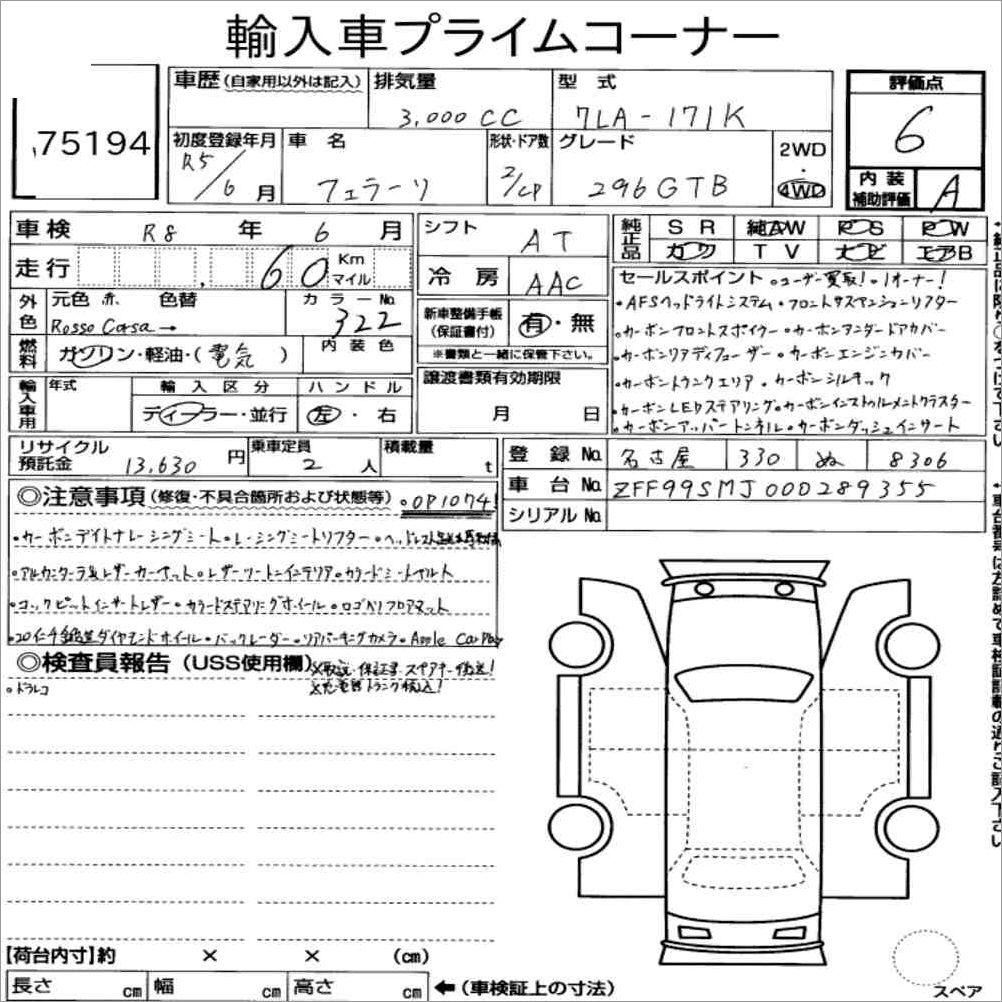 輸入車プライムコーナー
75194
車歴(自家用以外は記入) 排気量 型式 評価点
3,000 CC 7LA-171K 6
初度登録年月 車名 形状・ドア数 グレード 2WD・4WD
R5/6月 フェラーリ 2/CP 296GTB
内装補助評価 A
車検 R8年 6月 シフト AT 純正品 SR 純AW PS PW
カワ TV ナビ エアB
走行 60 Km マイル 冷房 AAC
外色 元色 赤 色替 カラーNo. 322
Rosso Corsa→
新車整備手帳(保証書付) 有・無
※書類と一緒に保管下さい。
燃料 ガソリン・軽油・(電気) 内装色
輸入車用 年式 輸入区分 ハンドル
ディーラー・並行 左・右
譲渡書類有効期限
月 日
セールスポイント ・ユーザー買取!・1オーナー!
・AFSヘッドライトシステム・フロントサスペンションリフター
・カーボンフロントスポイラー・カーボンアンダードアカバー
・カーボンリアディフューザー・カーボンエンジンカバー
・カーボントランクエリア・カーボンシルキック
・カーボンLEDステアリング・カーボンインストゥルメントクラスター
・カーボンアッパートンネル・カーボンダッシュインサート
リサイクル預託金 13,630円 乗車定員 2人 積載量 t
登録No. 名古屋 330 ぬ 8306
車台No. ZFF99SMJ000289355
シリアルNo.
◎注意事項(修復・不具合箇所および状態等) ・OP1074!
・カーボンデイトナレーシングシート・レーシングシートリフター
・アルカンターラ&レザーカーペット・レザーツートンインテリア・カラードシートベルト
・コックピットインサートレザー・カラードステアリングホイール・ロゴ入りフロアマット
・20インチ鍛造ダイヤモンドホイール・バックレーダー・リアパーキングカメラ・Apple CarPlay
◎検査員報告(USS使用欄) ※取説・保証書・スペアキー後送!
※充電器トランク積込!
・ドラレコ
【荷台内寸】約 × × (cm)
長さ cm 幅 cm 高さ cm ←(車検証上の寸法)
スペア